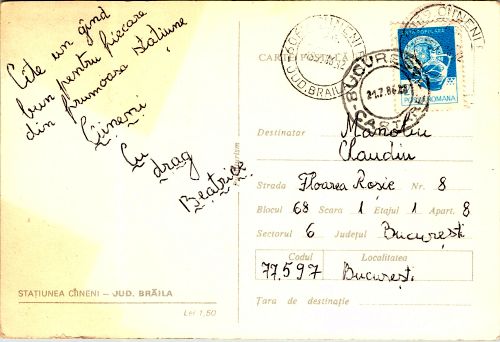 Câte un gând
bun pentru fiecare
din frumoasa Stațiune
Câineni
Cu
drag
Beatrice
STAȚIUNEA CÎINENI – JUD. BRĂILA
Lei 1,50
CARTE POȘTALĂ
CÎINENI
JUD. BRĂILA
BUCUREȘTI
21.7.86
POSTA ROMANA
Destinatar Manoliu
Claudiu
Strada Floarea Roșie Nr. 8
Blocul 68 Scara 1 Etajul 1 Apart. 8
Sectorul 6 Județul București
Codul Localitatea
77.597 București
Țara de destinație